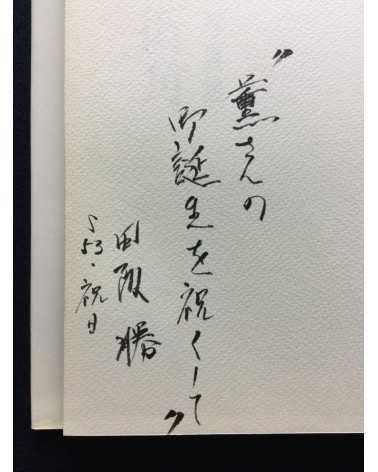 〝薫さんの
御誕生を祝くして〟
田阪 勝
S53・祝日